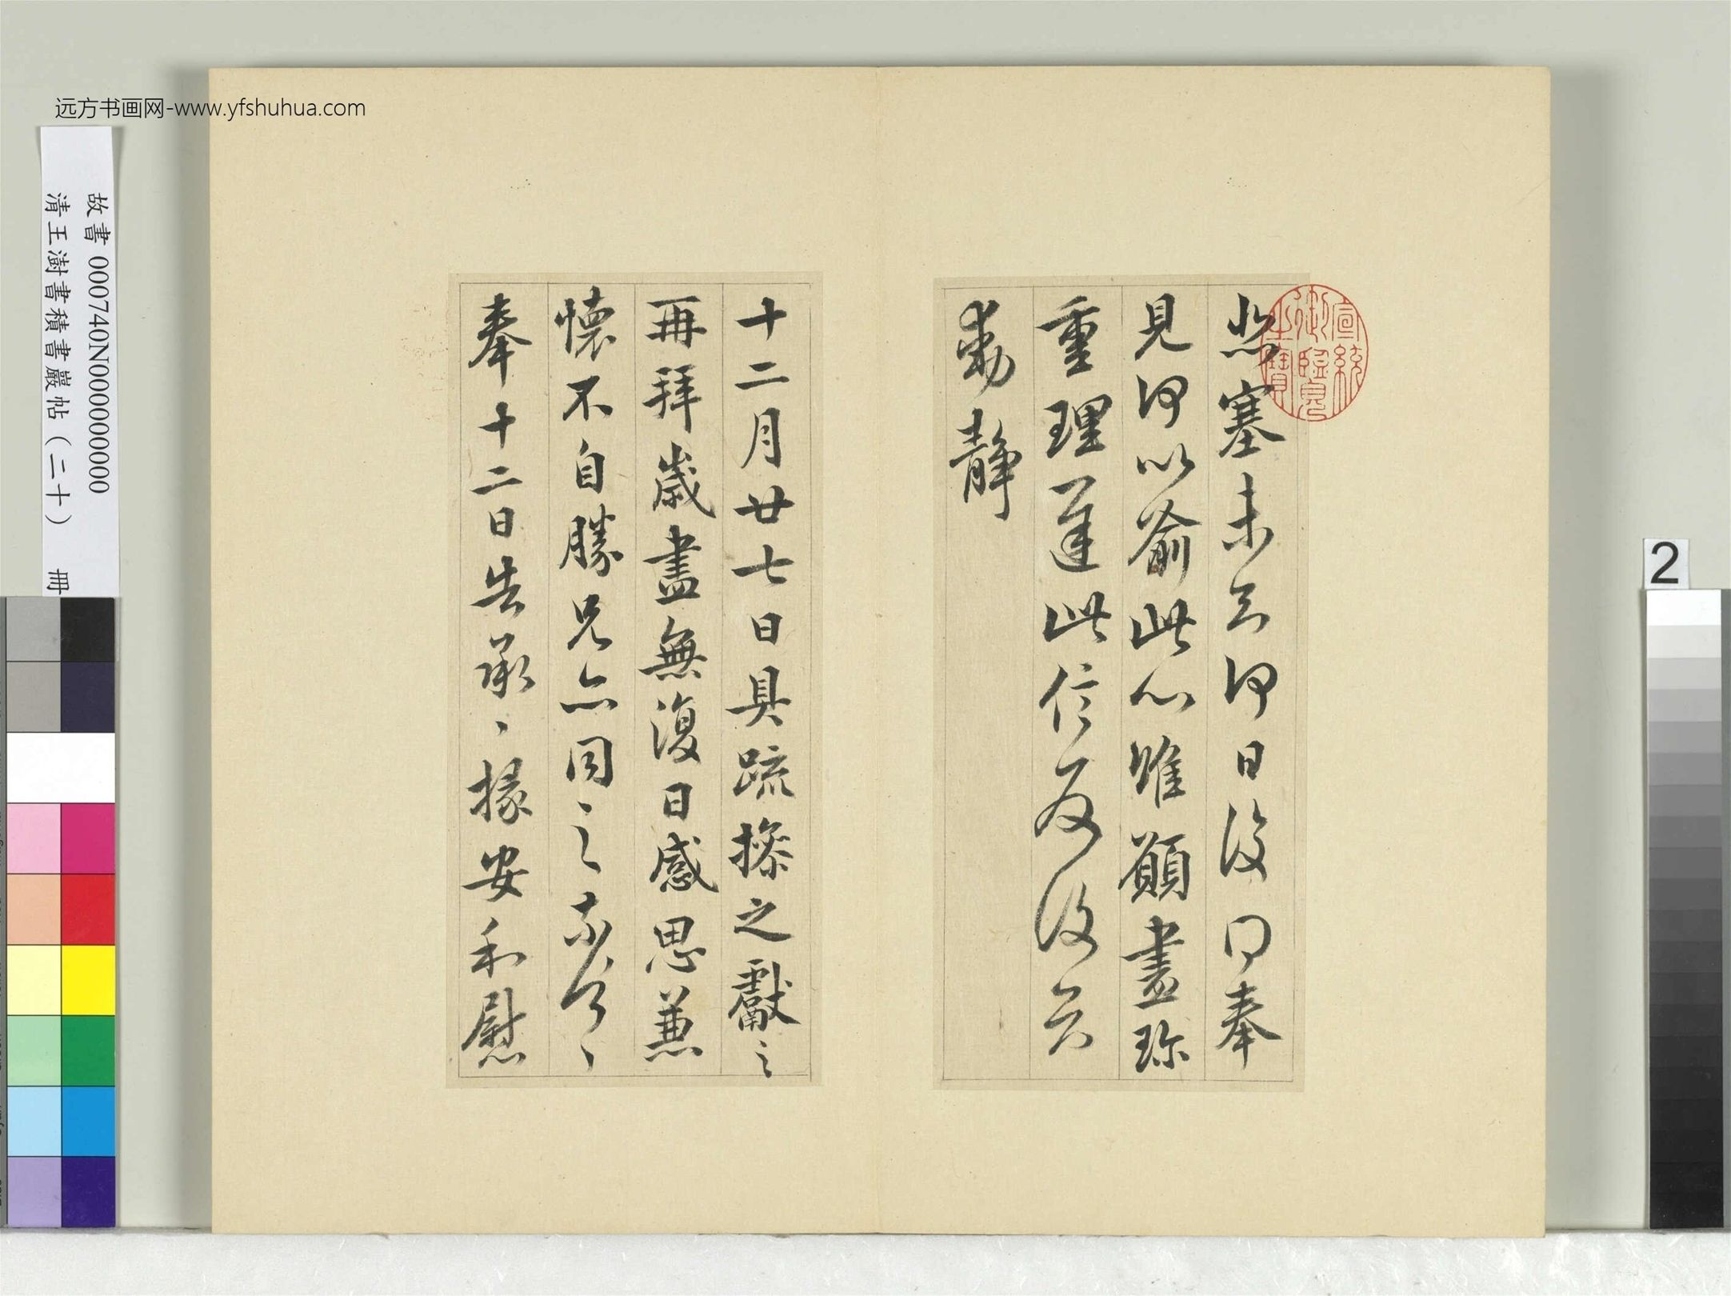 远方书画网-www.yfshuhua.com
故書 000740N000000000
清王澍書積書巖帖（二十） 冊
2
宣統御覽之寶
悲塞未知何日復得奉
見何以喻此心唯願盡珍
重理遲此信反復知
動靜
十二月廿七日具疏操之獻之
再拜歲盡無復日感思兼
懷不自勝兄亦同之奈何〻
奉十二日告承〻掾安和慰